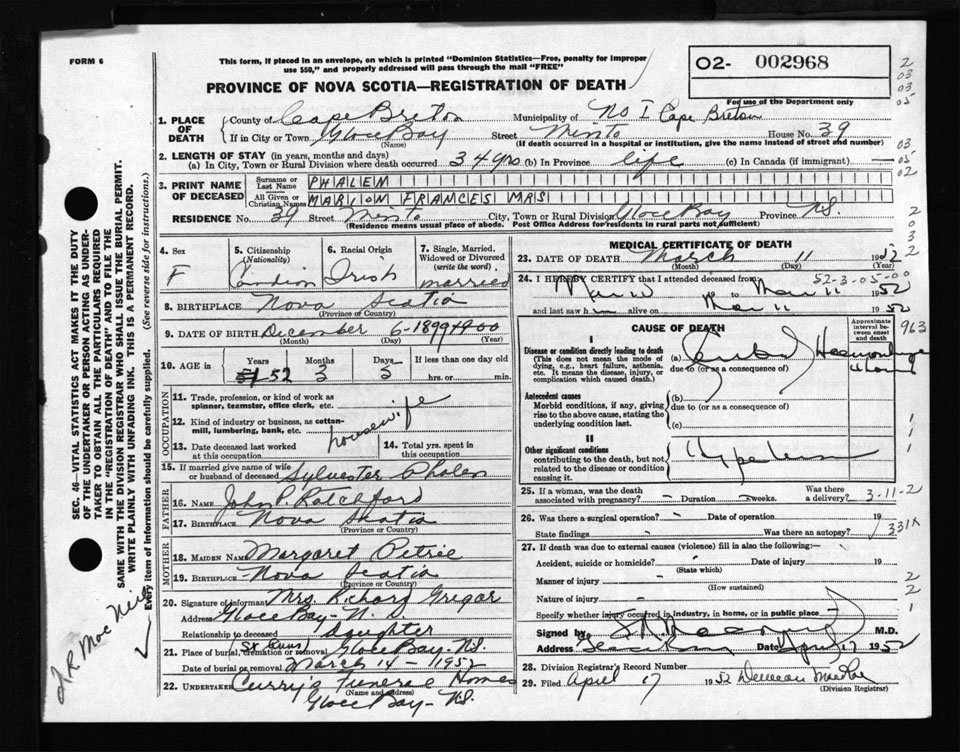 FORM 6
This form, if placed in an envelope, on which is printed "Dominion Statistics—Free, penalty for improper
use $50," and properly addressed will pass through the mail "FREE"
PROVINCE OF NOVA SCOTIA—REGISTRATION OF DEATH
02- 002968
For use of the Department only
1. PLACE OF DEATH
County of Cape Breton Municipality of No 1 Cape Breton
If in City or Town Glace Bay Street Minto House No. 39
(Name) (If death occurred in a hospital or institution, give the name instead of street and number)
2. LENGTH OF STAY (in years, months and days)
(a) In City, Town or Rural Division where death occurred 34 yrs (b) In Province life (c) In Canada (if immigrant) —
3. PRINT NAME OF DECEASED
Surname or Last Name PHALEN
All Given or Christian Names MARION FRANCES MRS
RESIDENCE No. 39 Street Minto City, Town or Rural Division Glace Bay Province N.S.
(Residence means usual place of abode. Post Office Address for residents in rural parts not sufficient)
4. Sex F
5. Citizenship (Nationality) Canadian
6. Racial Origin Irish
7. Single, Married, Widowed or Divorced (write the word) married
8. BIRTHPLACE Nova Scotia
(Province or Country)
9. DATE OF BIRTH December 6-1899
(Month) (Day) (Year)
10. AGE in Years 51 52 Months 3 Days 5 If less than one day old
hrs. or min.
OCCUPATION
11. Trade, profession, or kind of work as
spinner, teamster, office clerk, etc.
12. Kind of industry or business, as cotton-
mill, lumbering, bank, etc. housewife
13. Date deceased last worked at this occupation
14. Total yrs. spent in this occupation
15. If married give name of wife or husband of deceased Sylvester Phalen
FATHER
16. NAME John P. Ratchford
17. BIRTHPLACE Nova Scotia
(Province or Country)
MOTHER
18. MAIDEN NAME Margaret Petrie
19. BIRTHPLACE Nova Scotia
(Province or Country)
20. Signature of informant Mrs. Richard Gregor
Address Glace Bay - N.S.
Relationship to deceased daughter
21. Place of burial, cremation or removal Glace Bay - N.S.
Date of burial or removal March 14 - 1952
22. UNDERTAKER Curry's Funeral Home
(Name and address)
Glace Bay - N.S.
MEDICAL CERTIFICATE OF DEATH
23. DATE OF DEATH March 11 1952
(Month) (Day) (Year)
52-3-05-00
24. I HEREBY CERTIFY that I attended deceased from
to Mar 11 1952
and last saw h alive on Mar 11 1952
CAUSE OF DEATH
Approximate interval between onset and death
963
I
Disease or condition directly leading to death (a) Cerebral Haemorrhage
(This does not mean the mode of dying, e.g., heart failure, asthenia, etc. It means the disease, injury, or complication which caused death.)
due to (or as a consequence of)
Antecedent causes
Morbid conditions, if any, giving rise to the above cause, stating the underlying condition last.
(b)
due to (or as a consequence of)
(c)
II
Other significant conditions
contributing to the death, but not related to the disease or condition causing it.
25. If a woman, was the death associated with pregnancy? - Duration - weeks. Was there a delivery?
3-11-2
26. Was there a surgical operation? - Date of operation 19
State findings - Was there an autopsy?
331X
27. If death was due to external causes (violence) fill in also the following:—
Accident, suicide or homicide? Date of injury 19
(State which)
Manner of injury -
(How sustained)
Nature of injury -
Specify whether injury occurred in industry, in home, or in public place -
Signed by M.D.
Address Date April 17 1952
28. Division Registrar's Record Number
29. Filed April 17 1952
(Division Registrar)
SEC. 46—VITAL STATISTICS ACT MAKES IT THE DUTY
OF THE UNDERTAKER OR PERSON ACTING AS UNDER-
TAKER TO OBTAIN ALL THE PARTICULARS REQUIRED
IN THE "REGISTRATION OF DEATH" AND TO FILE THE
SAME WITH THE DIVISION REGISTRAR WHO SHALL ISSUE THE BURIAL PERMIT.
WRITE PLAINLY WITH UNFADING INK. THIS IS A PERMANENT RECORD.
Every item of information should be carefully supplied. (See reverse side for instructions.)